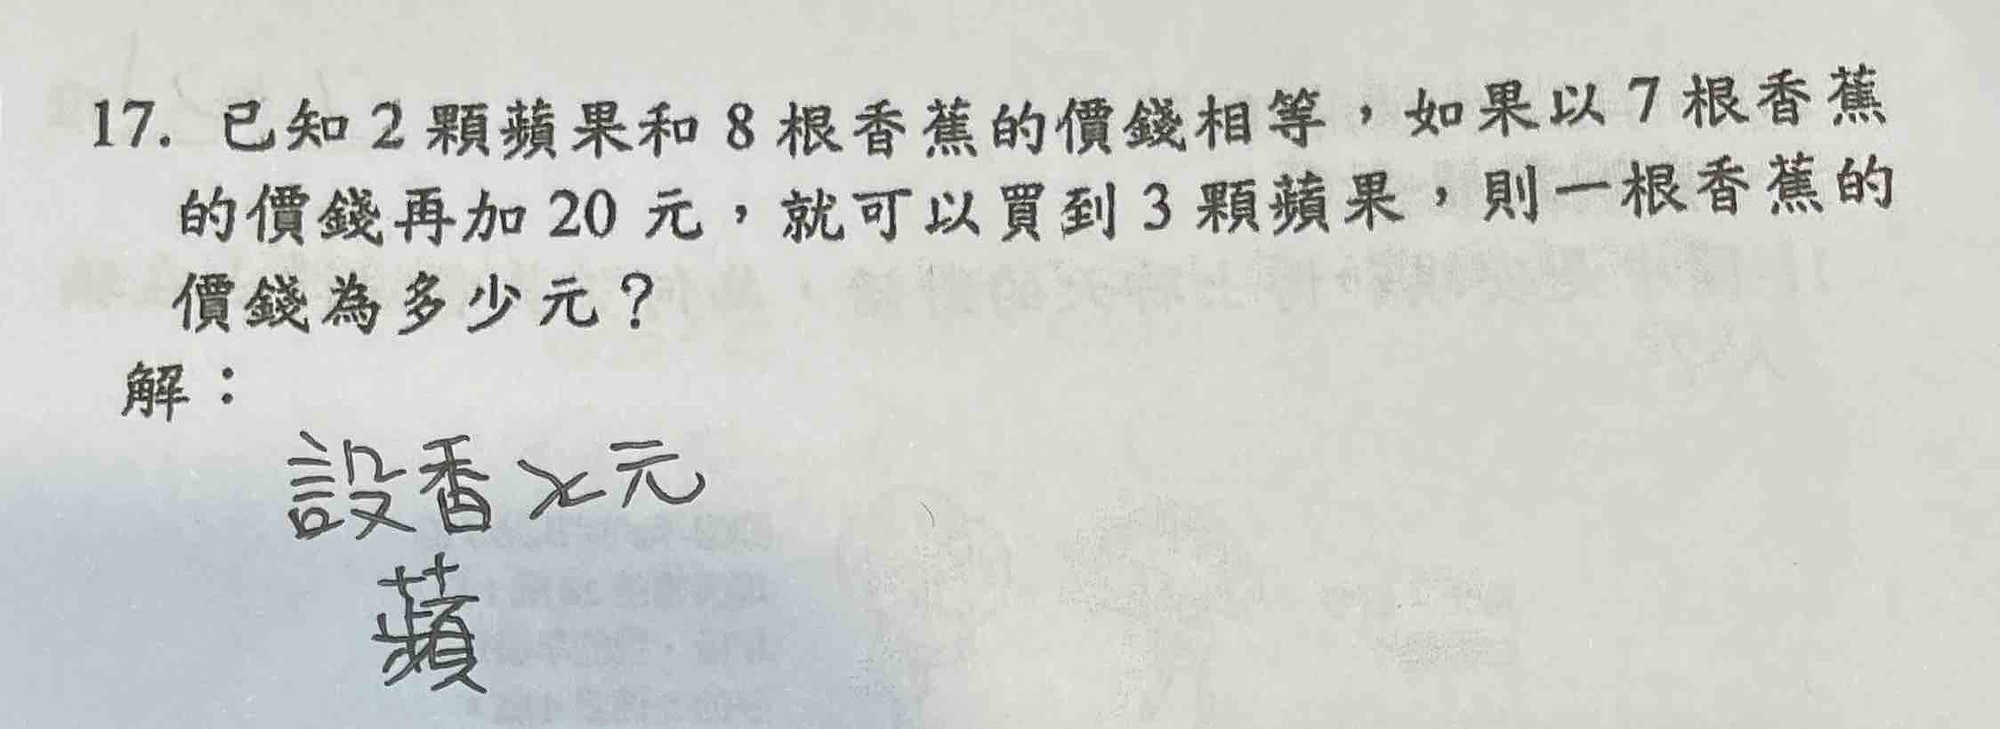 17. 已知 2 顆蘋果和 8 根香蕉的價錢相等，如果以 7 根香蕉
的價錢再加 20 元，就可以買到 3 顆蘋果，則一根香蕉的
價錢為多少元？
解：
設香 x 元
蘋